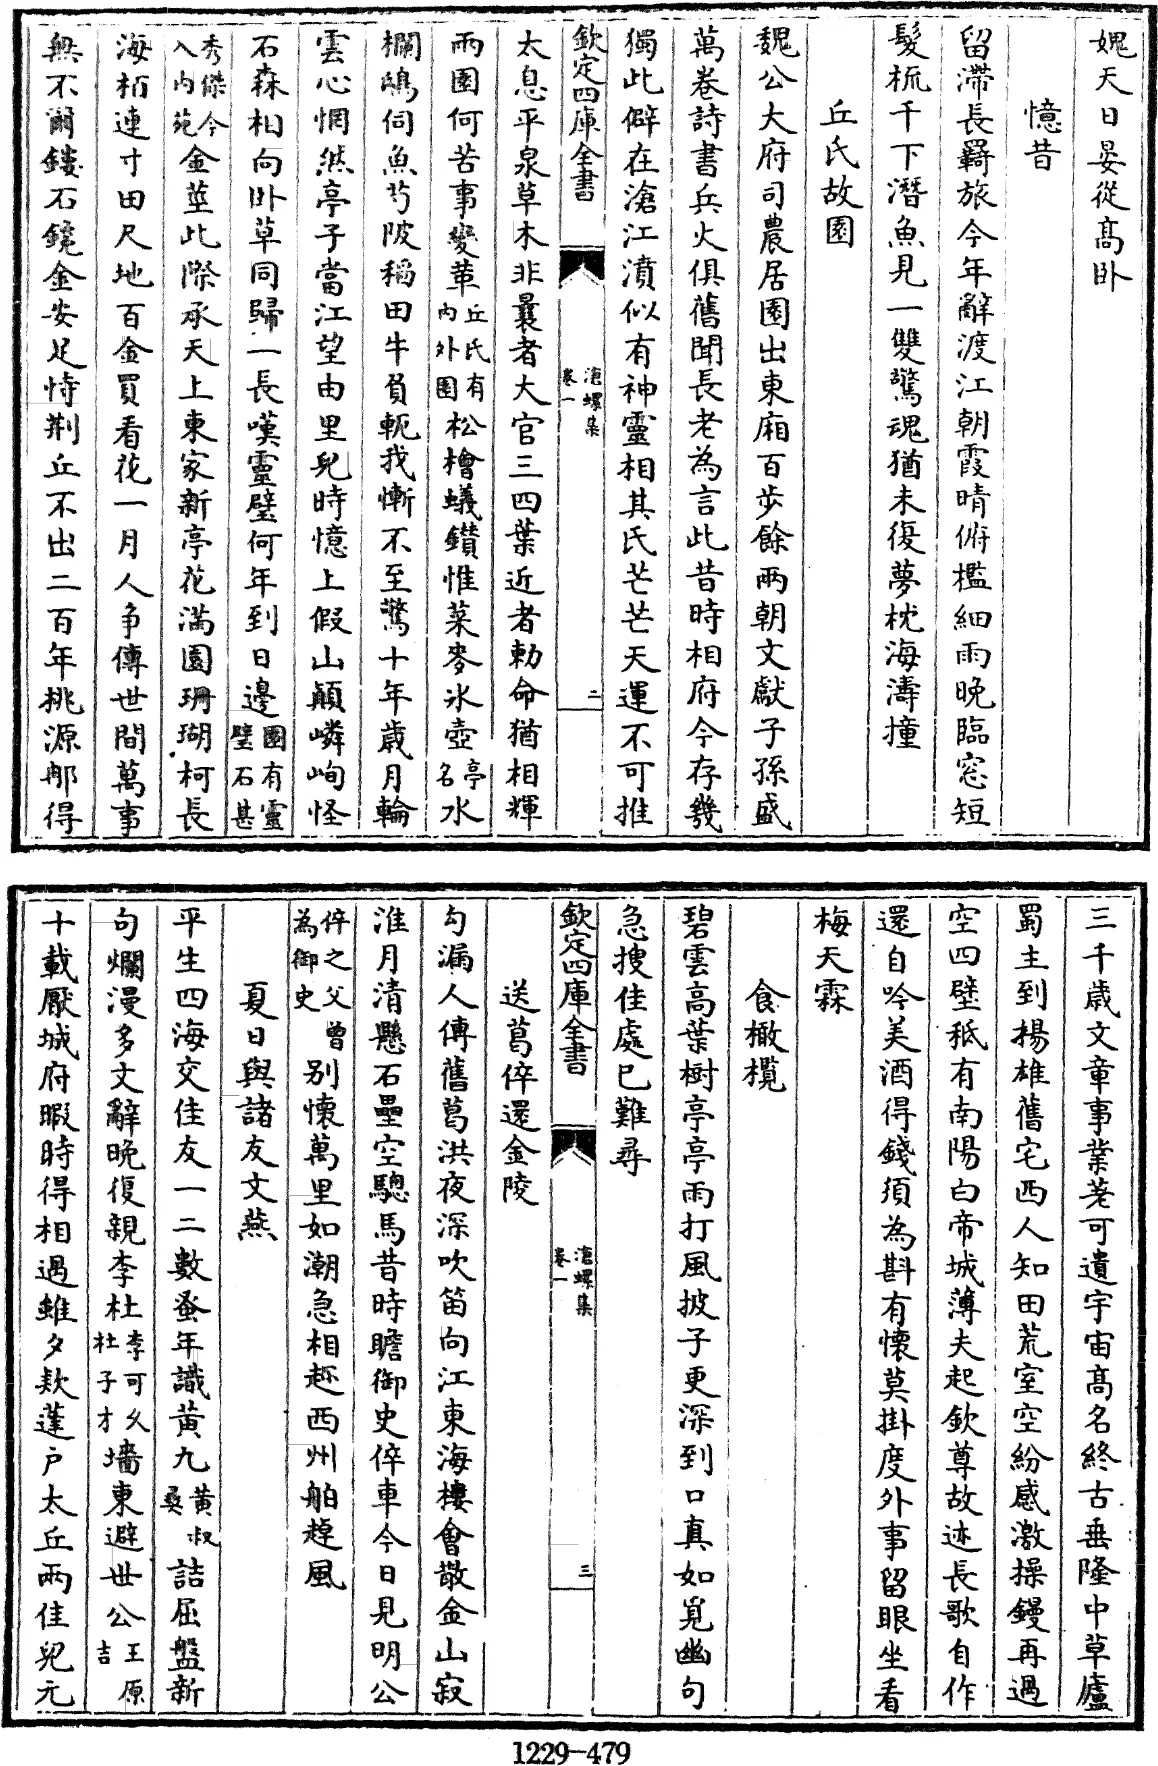 媿天日晏從髙卧
憶昔
留滯長羇旅今年辭渡江朝霞晴俯檻細雨晚臨窓短
髮梳千下潛魚見一雙驚魂猶未復夢枕海濤撞
丘氏故園
魏公大府司農居園出東廂百步餘兩朝文獻子孫盛
萬卷詩書兵火俱舊聞長老為言此昔時相府今存幾
獨此僻在滄江濆似有神靈相其氏芒芒天運不可推
欽定四庫全書
滄螺集
卷一
二
太息平泉草木非曩者大官三四葉近者勅命猶相輝
兩園何苦事變革丘氏有内外園松檜蟻鑽惟菜麥氷壺亭名水
欄鵁伺魚芍陂稻田牛負軛我慚不至驚十年歳月輪
雲心惘然亭子當江望由里兒時憶上假山顛嶙峋怪
石森相向卧草同歸一長嘆靈璧何年到日邊園有靈璧石甚
秀傑今入内苑金莖此際承天上東家新亭花滿園珊瑚柯長
海栢連寸田尺地百金買看花一月人争傳世間萬事
無不爾鏤石鐫金安足恃荆丘不出二百年桃源那得
三千歳文章事業茖可遺宇宙髙名終古垂隆中草廬
蜀主到揚雄舊宅西人知田荒室空紛感激操鏝再過
空四壁秪有南陽白帝城薄夫起欽尊故迹長歌自作
還自吟美酒得錢須為斟有懷莫掛度外事留眼坐看
梅天霖
食橄欖
碧雲高葉樹亭亭雨打風披子更深到口真如覓幽句
急搜佳處已難尋
欽定四庫全書
滄螺集
卷一
三
送葛倅還金陵
勾漏人傳舊葛洪夜深吹笛向江東海樓會散金山寂
淮月清懸石壘空驄馬昔時瞻御史倅車今日見明公
倅之父曽為御史别懷萬里如潮急相趂西州舶趠風
夏日與諸友文燕
平生四海交佳友一二數蚤年識黄九黄叔㬥詰屈盤新
句爛漫多文辭晚復親李杜李可久杜子才墻東避世公王原吉
十載厭城府暇時得相過雖夕欵蓬户太丘兩佳兒元
1229-479